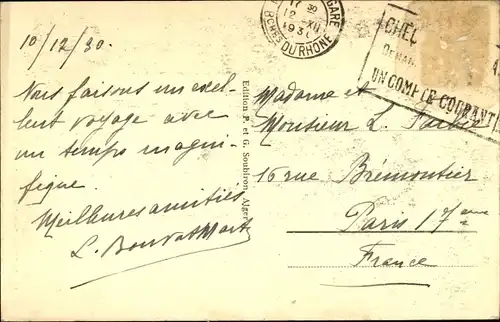 10/12/30.
Nous faisons un excel-
lent voyage avec
un temps magni-
fique.
Meilleures amitiés
L.
Edition P. et G. Soubiron, Alger
GARE
17 30
12 XII
193
BCHES DU RHONE
CHE
UN COMPTE COURANT
Madame et
Monsieur L.
16 rue Brémontier
Paris 17eme
France